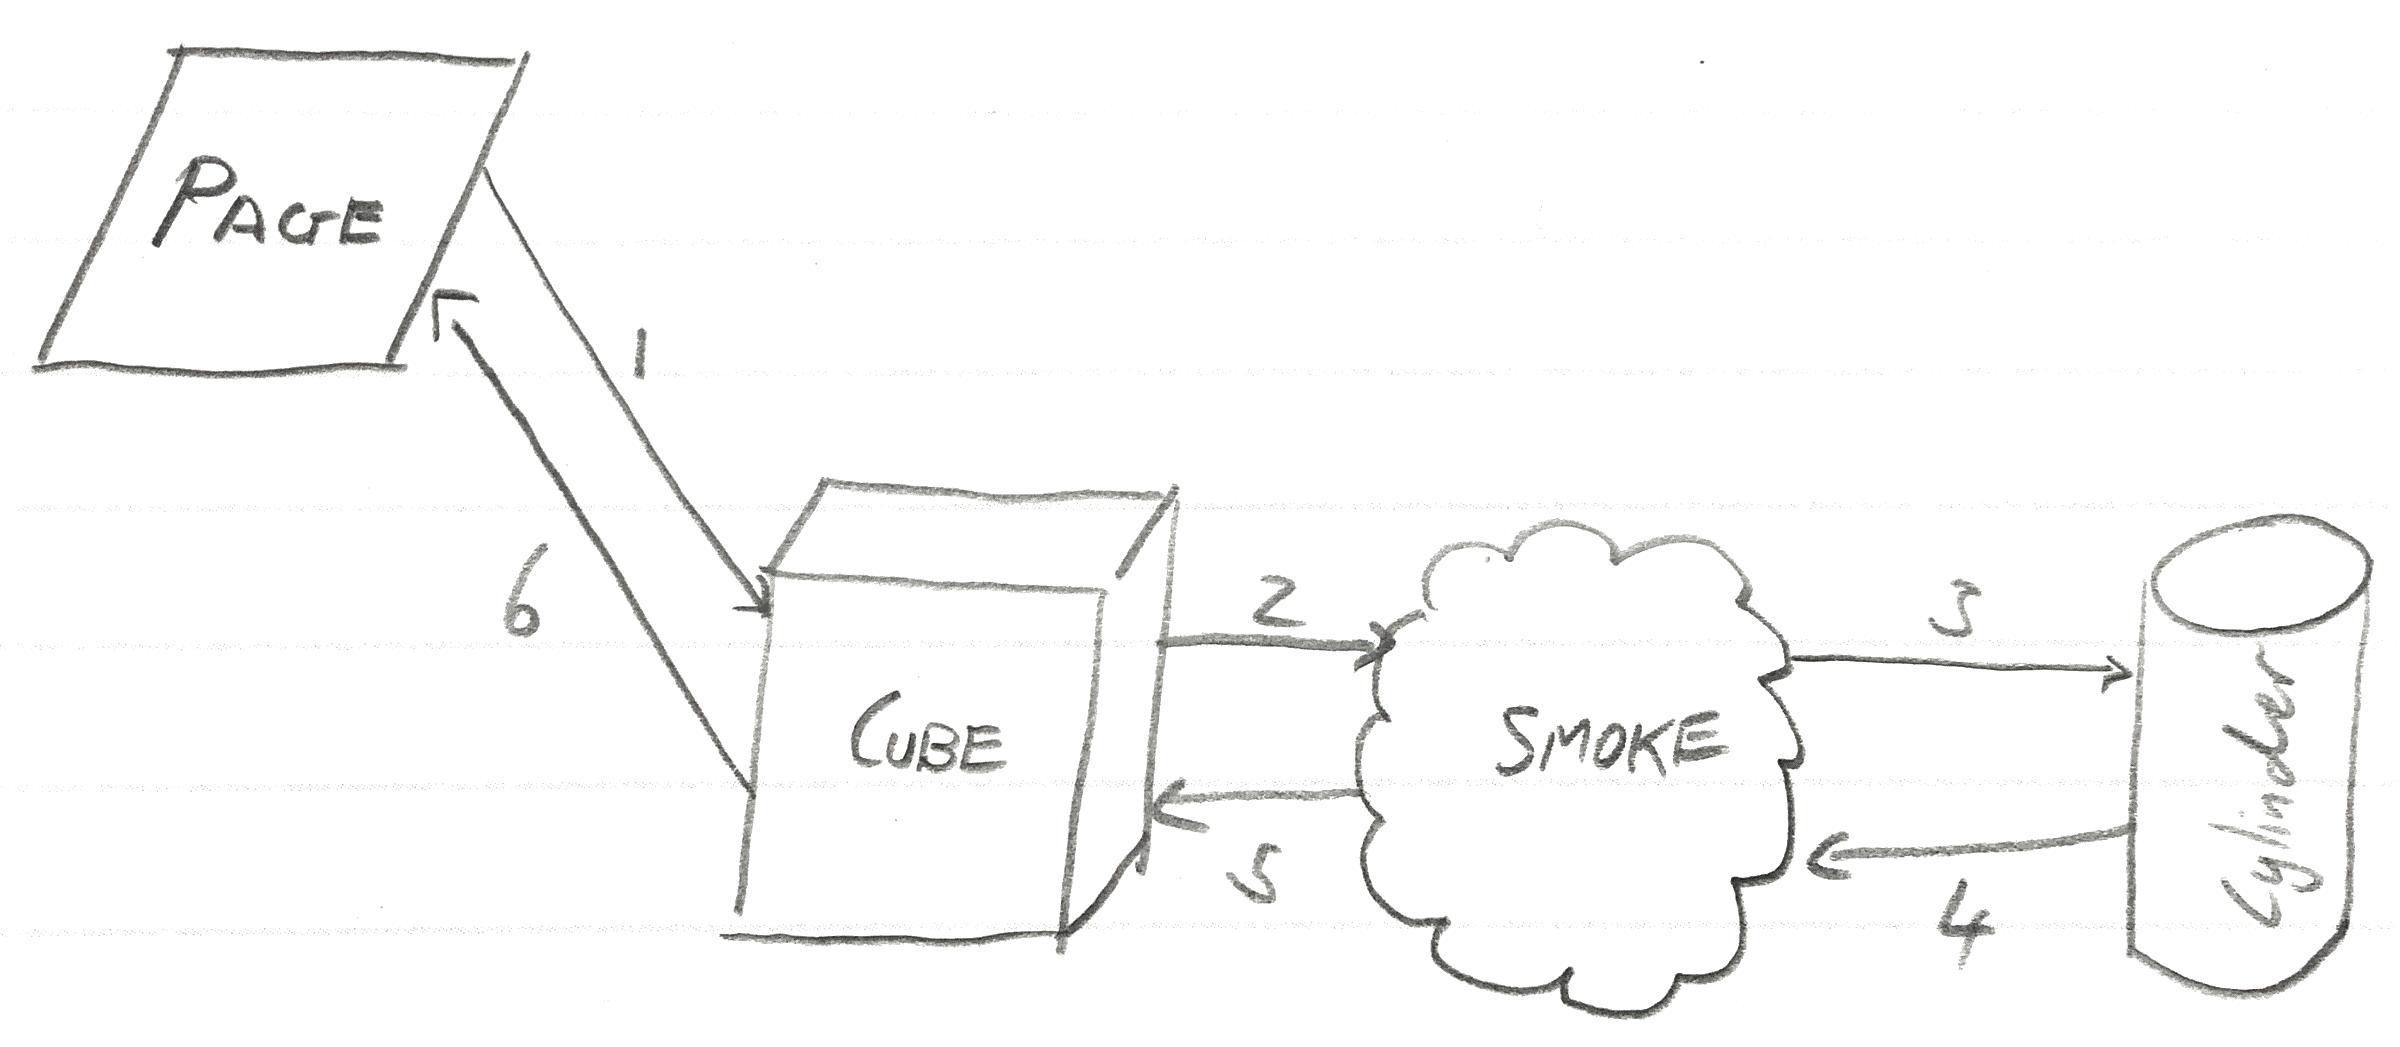 PAGE
1
6
CUBE
2
5
SMOKE
3
4
Cylinder